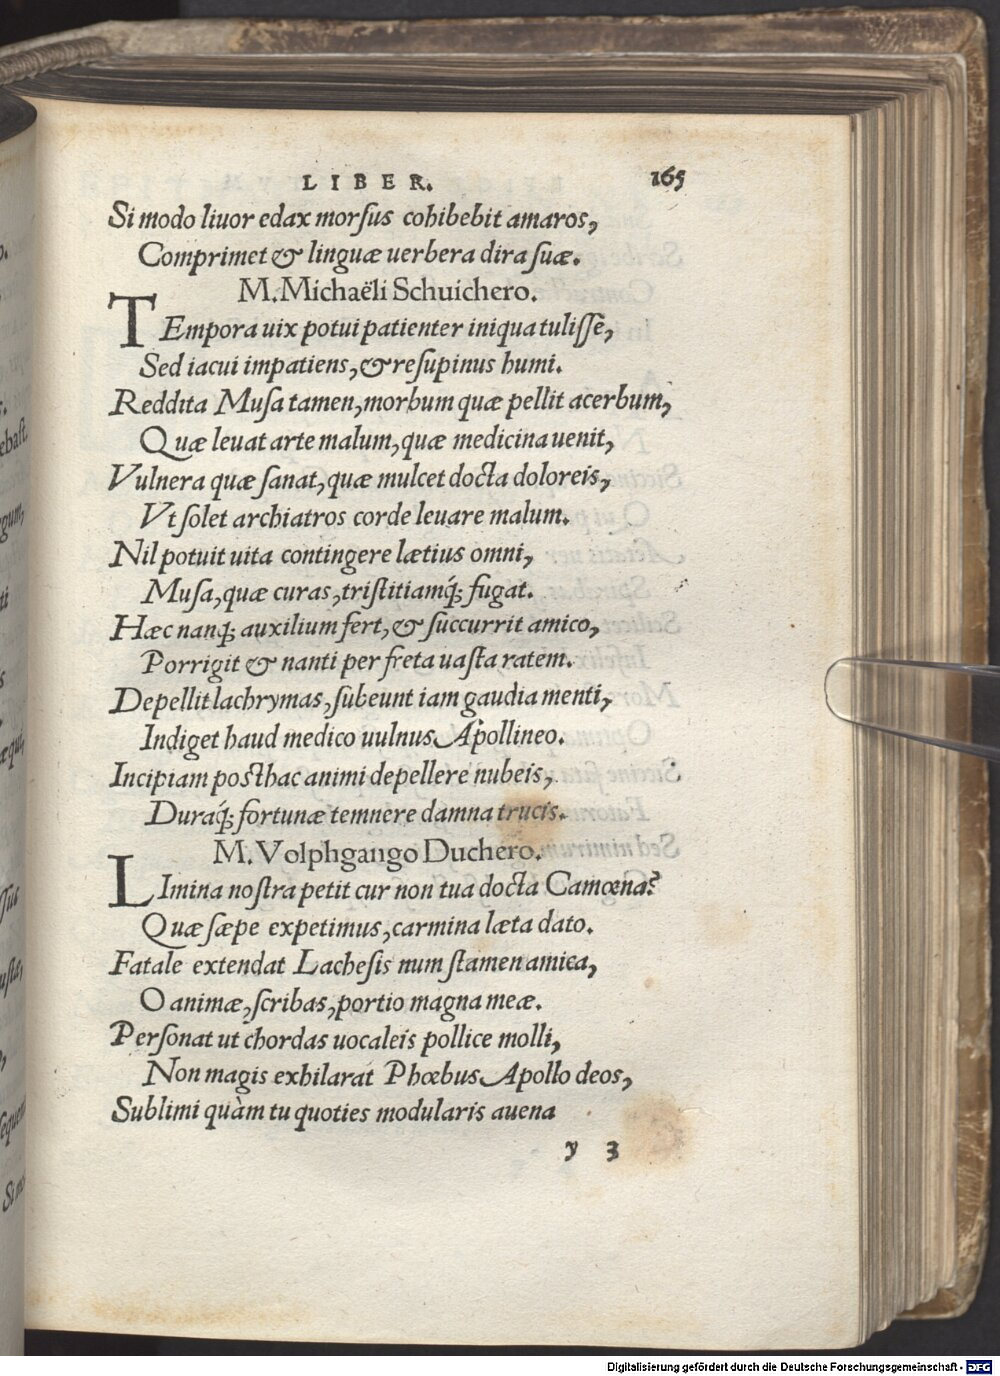 LIBER. 165
Si modo liuor edax morſus cohibebit amaros,
Comprimet & linguæ uerbera dira ſuæ.
M. Michaëli Schuichero.
TEmpora uix potui patienter iniqua tuliſſe,
Sed iacui impatiens, & reſupinus humi.
Reddita Muſa tamen, morbum quæ pellit acerbum,
Quæ leuat arte malum, quæ medicina uenit,
Vulnera quæ ſanat, quæ mulcet docta doloreis,
Vt ſolet archiatros corde leuare malum.
Nil potuit uita contingere lætius omni,
Muſa, quæ curas, triſtitiamq́; fugat.
Hæc nanq; auxilium fert, & ſuccurrit amico,
Porrigit & nanti per freta uaſta ratem.
Depellit lachrymas, ſubeunt iam gaudia menti,
Indiget haud medico uulnus Apollineo.
Incipiam poſthac animi depellere nubeis,
Duraq́; fortunæ temnere damna trucis.
M. Volphgango Duchero.
LImina noſtra petit cur non tua docta Camœna?
Quæ ſæpe expetimus, carmina læta dato.
Fatale extendat Lacheſis num ſtamen amica,
O animæ, ſcribas, portio magna meæ.
Perſonat ut chordas uocaleis pollice molli,
Non magis exhilarat Phœbus Apollo deos,
Sublimi quàm tu quoties modularis auena
y 3
Digitalisierung gefördert durch die Deutsche Forschungsgemeinschaft - DFG